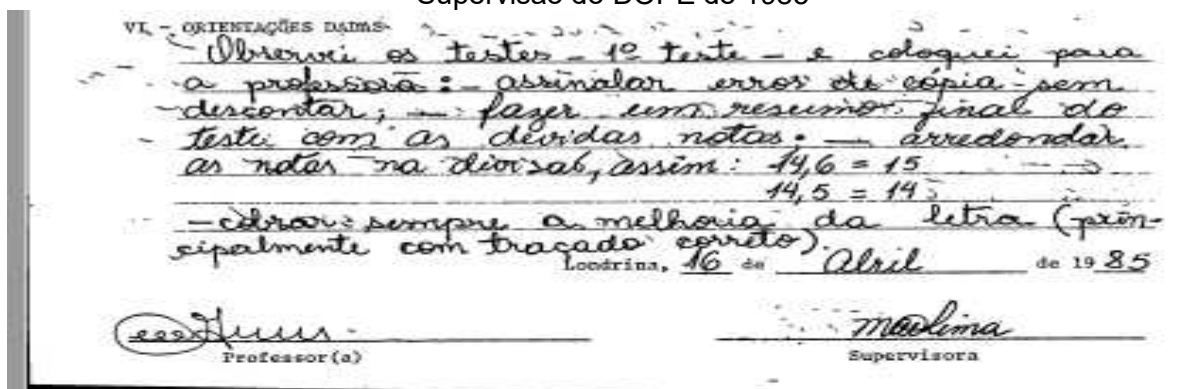 Supervisão do DOPE de 1985
VI - ORIENTAÇÕES DADAS
Observei os testes - 1º teste - e coloquei para
a professora: - assinalar erros de cópia sem
descontar; - fazer um resumo final do
teste com as devidas notas; - arredondar
as notas na divisão, assim: 14,6 = 15
14,5 = 14
- cobrar sempre a melhoria da letra (prin-
cipalmente com traçado correto).
Londrina, 16 de Abril de 19 85
Professor(a)
Supervisora